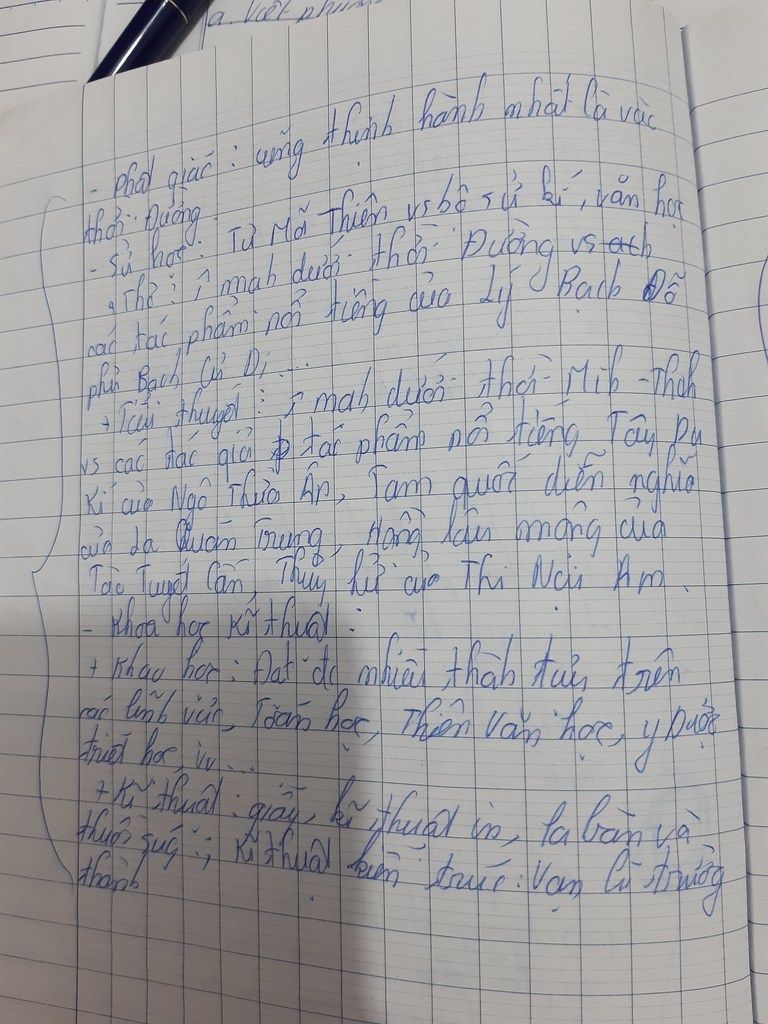 a Việt phươ
- Phật giáo: cũng thịnh hành nhất là vào
thời Đường.
- Sử học: Tư Mã Thiên vs bộ sử kí, văn học
+ Thơ: ↑ mạh dưới thời Đường vs
các tác phẩm nổi tiếng của Lý Bạch Đỗ
phủ Bạch Cư Dị ...
+ Tiểu thuyết: ↑ mạh dưới thời Mih - Thah
vs các tác giả tác phẩm nổi tiếng Tây Du
Kí của Ngô Thừa Ân, Tam quốc diễn nghĩa
của La Quán Trung, Hồng lâu mộng của
Tào Tuyết Cần, Thủy hử của Thi Nại Am.
- Khoa học kĩ thuật:
+ Khoa học: Đạt đc nhiều thàh tựu trên
các lĩnh vực, Toán học, Thiên văn học, y Dược
triết học, vv...
+ Kĩ thuật: giấy, kĩ thuật in, la bàn và
thuốc súng; kĩ thuật kiến trúc: Vạn lí trường
thành